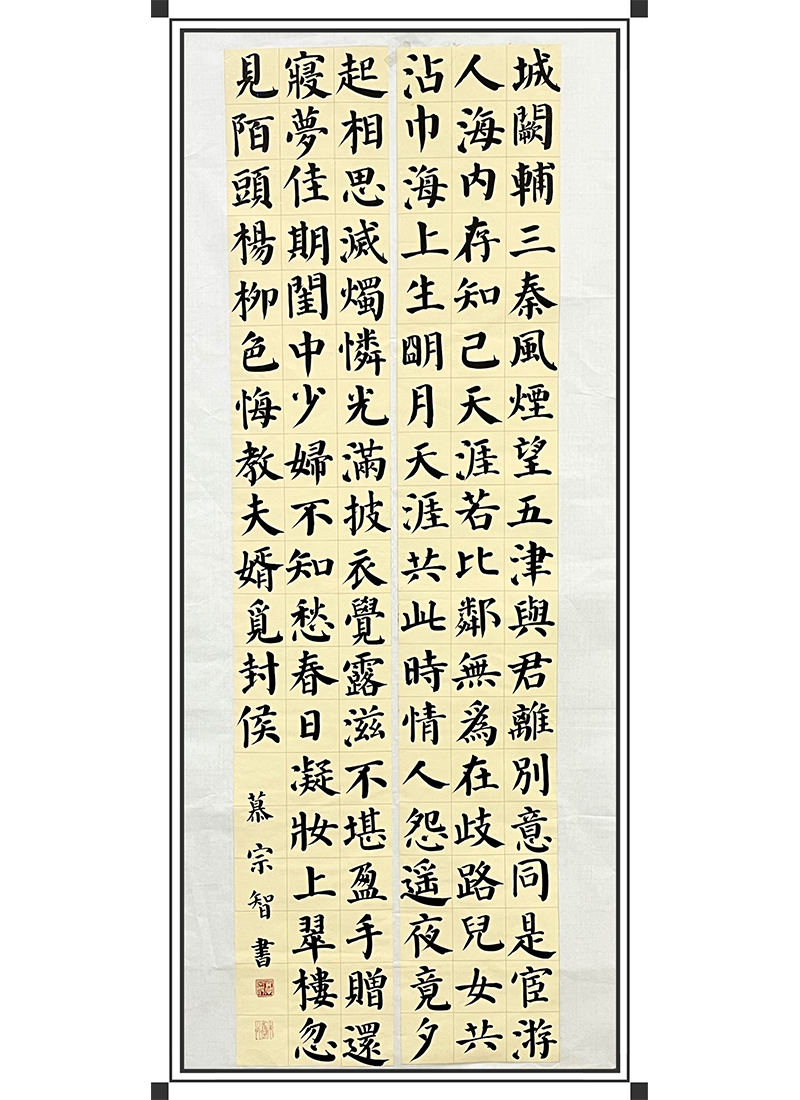 城闕輔三秦風煙望五津與君離別意同是宦游
人海内存知己天涯若比鄰無爲在歧路兒女共
沾巾海上生明月天涯共此時情人怨遥夜竟夕
起相思滅燭憐光滿披衣覺露滋不堪盈手贈還
寝夢佳期閨中少婦不知愁春日凝妝上翠樓忽
見陌頭楊柳色悔教夫婿覓封侯
慕宗智書